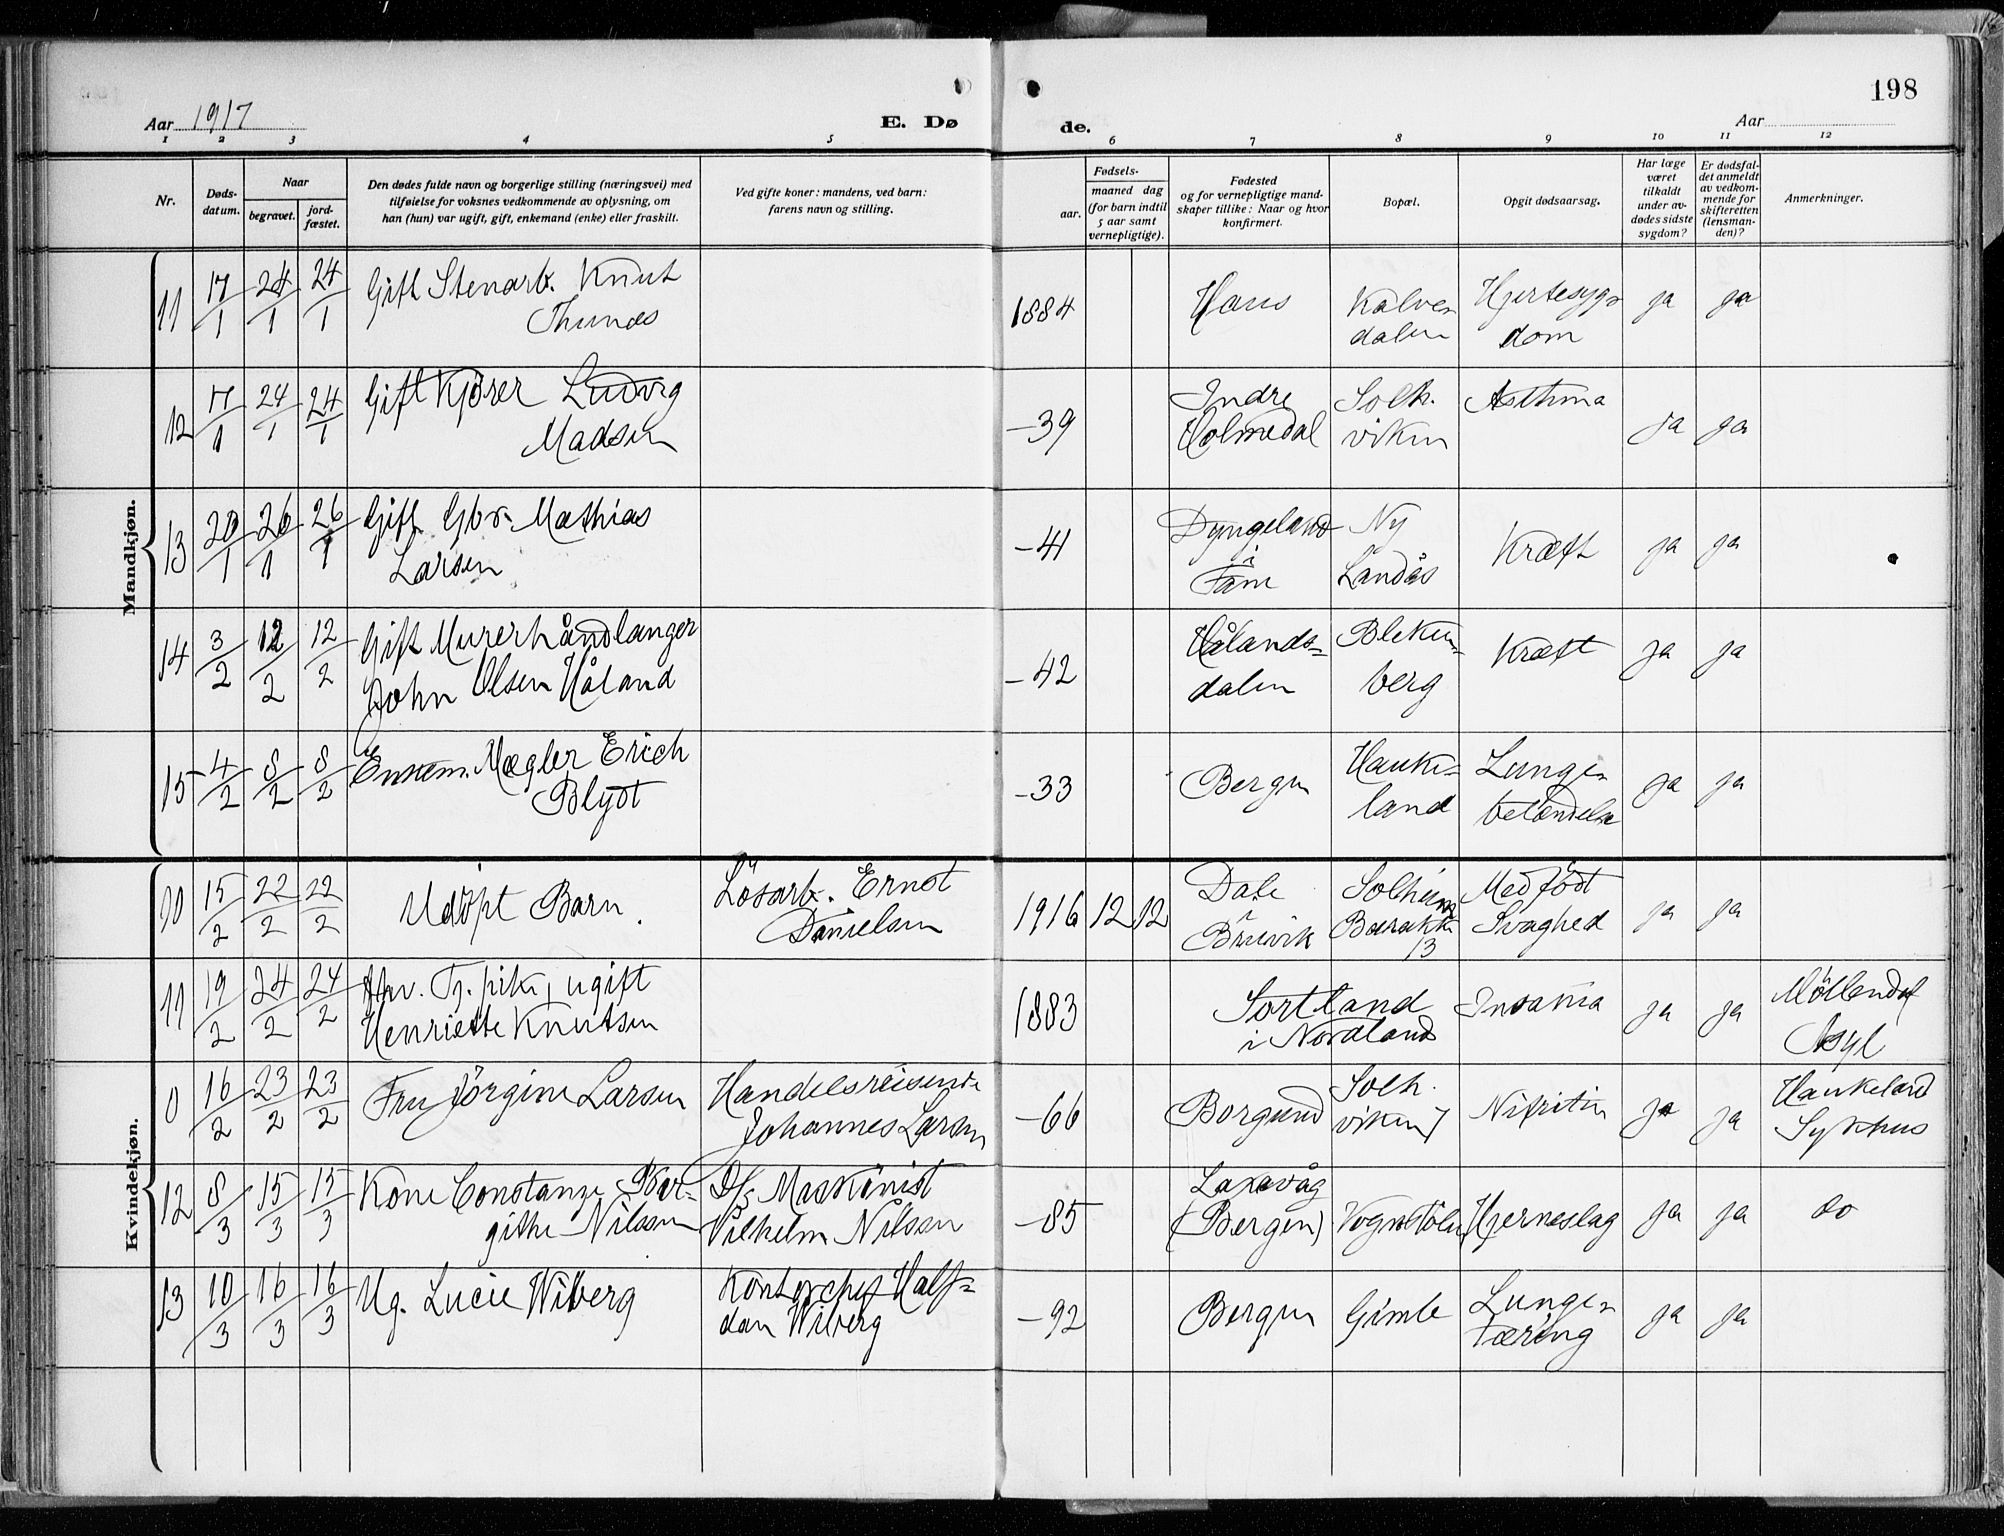 198
Aar 1917
E. Dø
de.
Aar
1 2 3 4 5 6 7 8 9 10 11 12
Nr.
Døds-
datum.
Naar
begravet.
jord-
fæstet.
Den dødes fulde navn og borgerlige stilling (næringsvei) med
tilføielse for voksnes vedkommende av oplysning, om
han (hun) var ugift, gift, enkemand (enke) eller fraskilt.
Ved gifte koner: mandens, ved barn:
farens navn og stilling.
Fødsels-
aar.
maaned dag
(for barn indtil
5 aar samt
vernepligtige).
Fødested
og for vernepligtige mand-
skaper tillike: Naar og hvor
konfirmert.
Bopæl.
Opgit dødsaarsag.
Har læge
været
tilkaldt
under av-
dødes sidste
sygdom?
Er dødsfal-
det anmeldt
av vedkom-
mende for
skifteretten
(lensman-
den)?
Anmerkninger.
Mandkjøn.
11 17/1 24/1 24/1 Gift Stenarb. Knut
1884 Haus Kalve- Hjertesyg- ja ja
dalen dom
12 17/1 24/1 24/1 Gift Kjörer Ludvig
Madsen
-39 Indre Solh. Asthma ja ja
Holmedal viken
13 20/1 26/1 26/1 Gift Gbr. Mathias
Larsen
-41 Dyngeland Ny Kræft ja ja
i Landås
Fane
14 3/2 12/2 12/2 Gift Murerhåndlanger
John Olsen Håland
-42 Hålands- Bleken- Kræft ja ja
dalen berg
15 4/2 8/2 8/2 Enkem. Mægler Erich
Blydt
-33 Bergen Hauke- Lunge- ja ja
land betændelse
Kvindekjøn.
10 15/2 22/2 22/2 Udöpt Barn. Lösarb. Ernst
Danielsen
1916 12 12 Dale Solheim Medfödt ja ja
i Barakke Svaghed
Bruvik 13
11 19/2 24/2 24/2 Frv. Tj. pike, ugift
Henriette Knutsen
1883 Sortland Insania ja ja Möllendal
i Nordland Asyl
0 16/2 23/2 23/2 Fru Jörgine Larsen Handelsreisende
Johannes Larsen
-66 Borgund Solh. Nefritis ja ja Haukeland
viken Sykehus
12 8/3 15/3 15/3 Kone Constanze Ber- D/s Maskinist
githe Nilssen Vilhelm Nilssen
-85 Laxevåg Vognstölen Hjerneslag ja ja do
(Bergen)
13 10/3 16/3 16/3 Ug. Lucie Wiberg Kontorchef Half-
dan Wiberg
-92 Bergen Gimle Lunge- ja ja
tæring